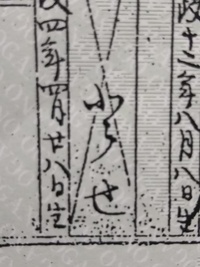 政十二年八月八日生
せ
四年四月廿八日生